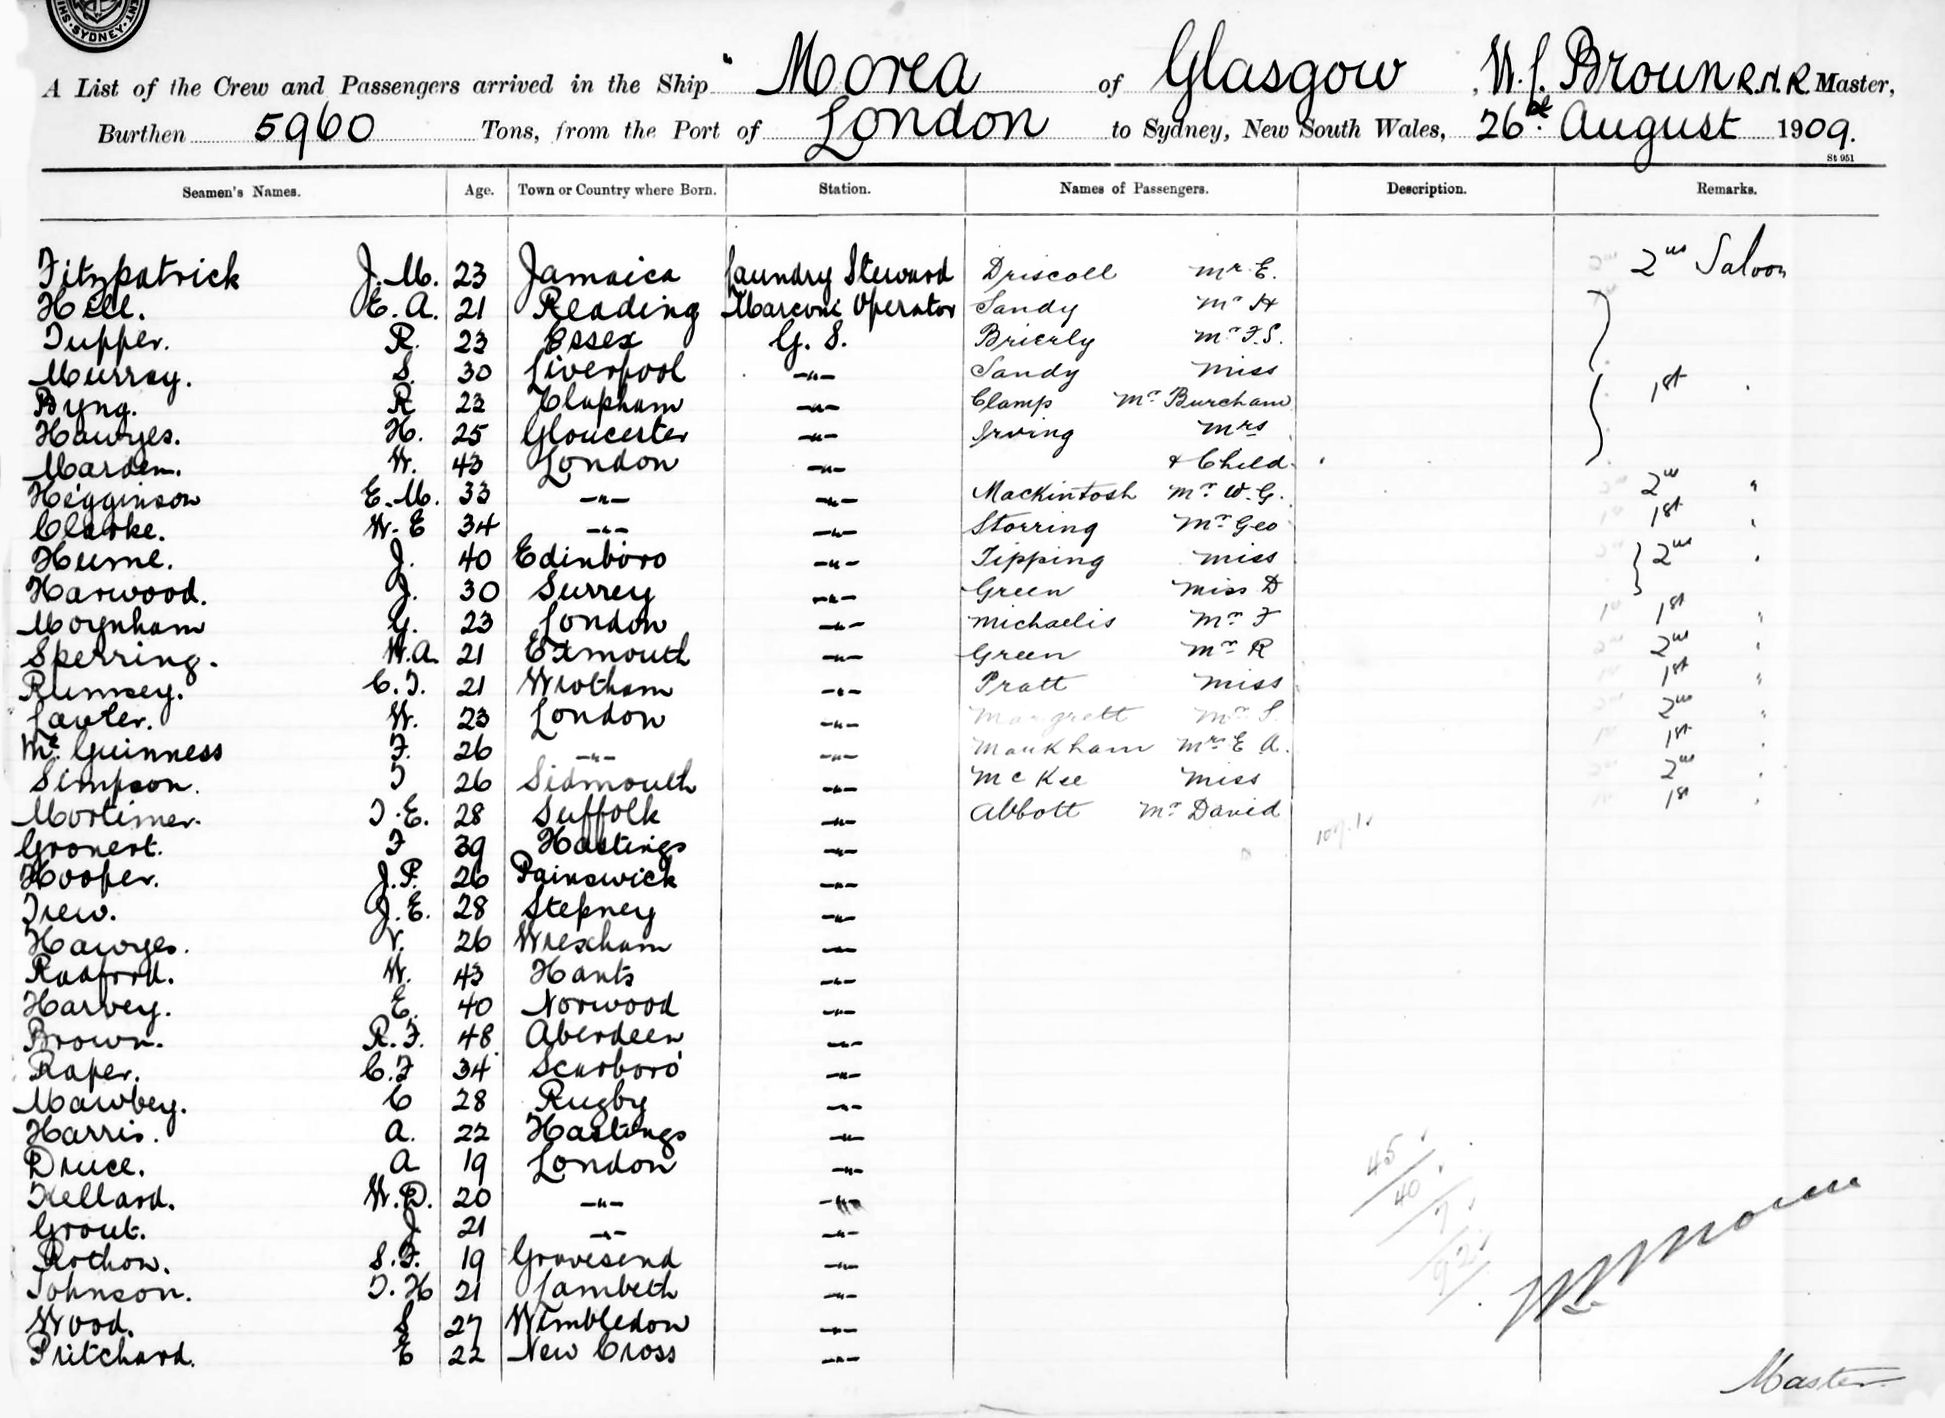 SYDNEY
A List of the Crew and Passengers arrived in the Ship " Morea of Glasgow , W. Broun R.N.R. Master,
Burthen 5960 Tons, from the Port of London to Sydney, New South Wales, 26th August 1909.
St 951
Seamen's Names. Age. Town or Country where Born. Station. Names of Passengers. Description. Remarks.
Fitzpatrick J. M. 23 Jamaica Laundry Steward Driscoll Mr E. 2nd Saloon
Hill. E. A. 21 Reading Marconi Operator Sandy Mr H
Tupper. R. 23 Essex G. S. Brierly Mr F.S.
Murray. S. 30 Liverpool -"- Sandy Miss
Byng. R 23 Clapham -"- Clamp Mr Burcham 1st
Hawyes. H. 25 Gloucester -"- Irving Mrs
Marden. W. 43 London -"- & Child.
Higginson E. M. 33 -"- -"- Mackintosh Mr W. G. 2nd "
Clarke. W. E 34 -"- -"- Storring Mr Geo 1st "
Hume. J. 40 Edinboro -"- Tipping Miss 2nd "
Harwood. J. 30 Surrey -"- Green Miss D
Moynham G. 23 London -"- Michaelis Mr F 1st "
Sperring. W.A. 21 Exmouth -"- Green Mr R 2nd "
Rumsey. C. T. 21 Wrotham -"- Pratt Miss 1st "
Lawler. W. 23 London -"- Margrett Mr S. 2nd "
Mc Guinness F. 26 -"- -"- Markham Mr E A. 1st "
Simpson. T 26 Sidmouth -"- McKee Miss 2nd "
Mortimer. T. E. 28 Suffolk -"- Abbott Mr David 1st "
Gronert. F 39 Hastings -"-
Hooper. J. P. 26 Painswick -"-
Trew. J. E. 28 Stepney -"-
Hawyes. V. 26 Wrexham -"-
Radford. W. 43 Hants -"-
Harvey. E. 40 Norwood -"-
Brown. R. F. 48 Aberdeen -"-
Raper. C. F 34 Scarboro' -"-
Mawbey. C 28 Rugby -"-
Harris. A. 22 Hastings -"-
Druce. A 19 London -"-
Kellard. W. D. 20 -"- -"-
Grout. J 21 -"- -"-
Rothon. S. F. 19 Gravesend -"-
Johnson. T. H 21 Lambeth -"-
Wood. S 27 Wimbledon -"-
Pritchard. E 22 New Cross -"-
45
40
7
92
Master